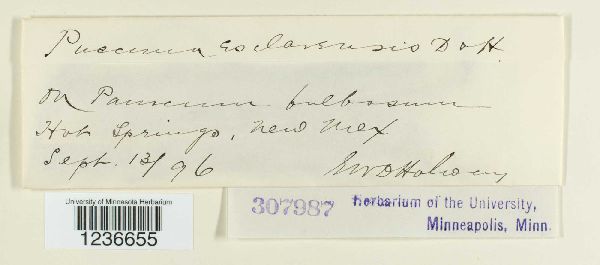 Puccinia esclavensis D & H.
on Panicum bulbosum
Hot Springs, New Mex
Sept. 13/96
EWD Holway
University of Minnesota Herbarium
1236655
307987
Herbarium of the University,
Minneapolis, Minn.